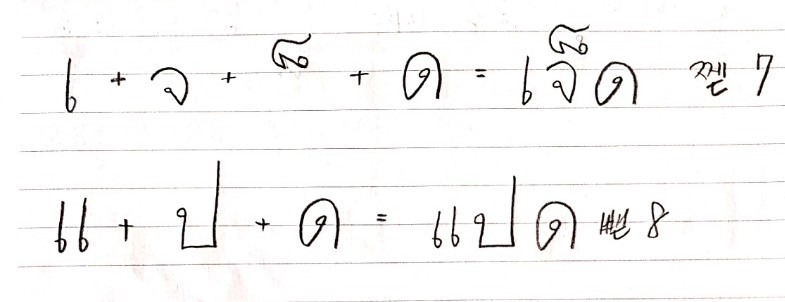 เ + จ + ็ + ด = เจ็ด 쩯 7
แ + ป + ด = แปด 뺃 8